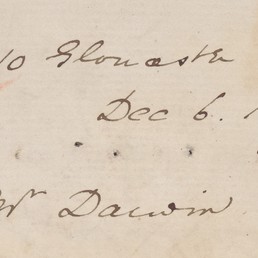 10 Gloucester
Dec 6.
Mr Darwin